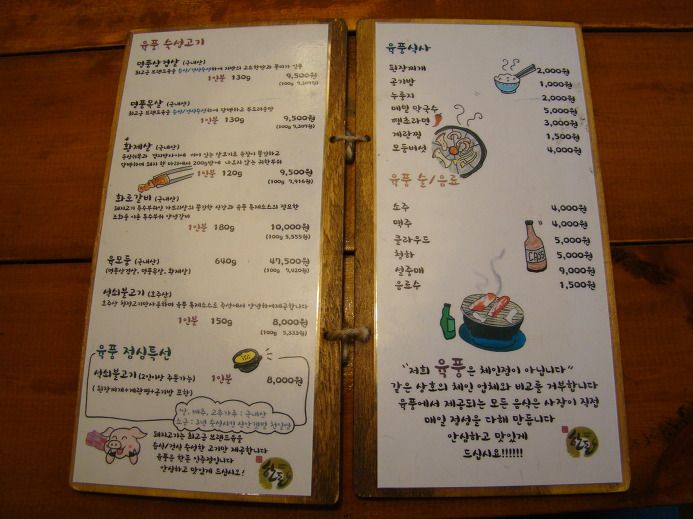 육풍 숙성고기
명품삼겹살 (국내산)
1인분 130g 9,500원
(100g 7,307원)
명품목살 (국내산)
1인분 130g 9,500원
(100g 7,307원)
황제살 (국내산)
1인분 120g 9,500원
(100g 7,916원)
화로갈비 (국내산)
1인분 180g 10,000원
(100g 5,555원)
육모듬 (국내산) 640g 47,500원
(명품삼겹살, 명품목살, 황제살) (100g 7,420원)
석쇠불고기 (호주산)
1인분 150g 8,000원
(100g 5,333원)
육풍 점심특선
석쇠불고기 (2인이상 주문가능) 1인분 8,000원
(된장찌개+계란찜+공기밥 포함)
쌀, 배추, 고추가루 : 국내산
돼지고기는 최고급 브랜드육을
습식/건식 숙성한 고기만 제공합니다
육풍은 한돈 인증점입니다
안심하고 맛있게 드십시오!
육풍식사
된장찌개 2,000원
공기밥 1,000원
누룽지 2,000원
메밀 막국수 5,000원
땡초라면 3,000원
계란찜 1,500원
모듬버섯 4,000원
육풍 술/음료
소주 4,000원
맥주 4,000원
클라우드 5,000원
청하 5,000원
설중매 9,000원
음료수 1,500원
CASS
"저희 육풍은 체인점이 아닙니다"
같은 상호의 체인 업체와 비교를 거부합니다
육풍에서 제공되는 모든 음식은 사장이 직접
매일 정성을 다해 만듭니다
안심하고 맛있게
드십시요!!!!!!